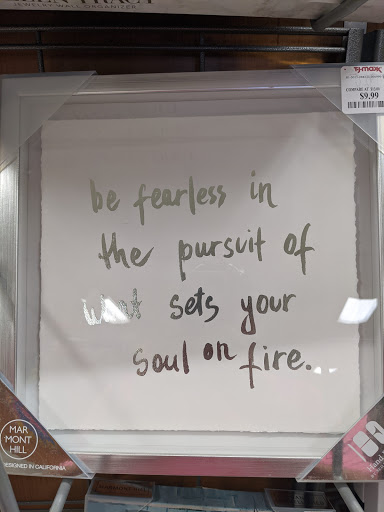 JEWELRY WALL ORGANIZER
T.J.maxx
COMPARE AT
$9.99
be fearless in
the pursuit of
what sets your
soul on fire.
MAR
MONT
HILL
DESIGNED IN CALIFORNIA
Hand